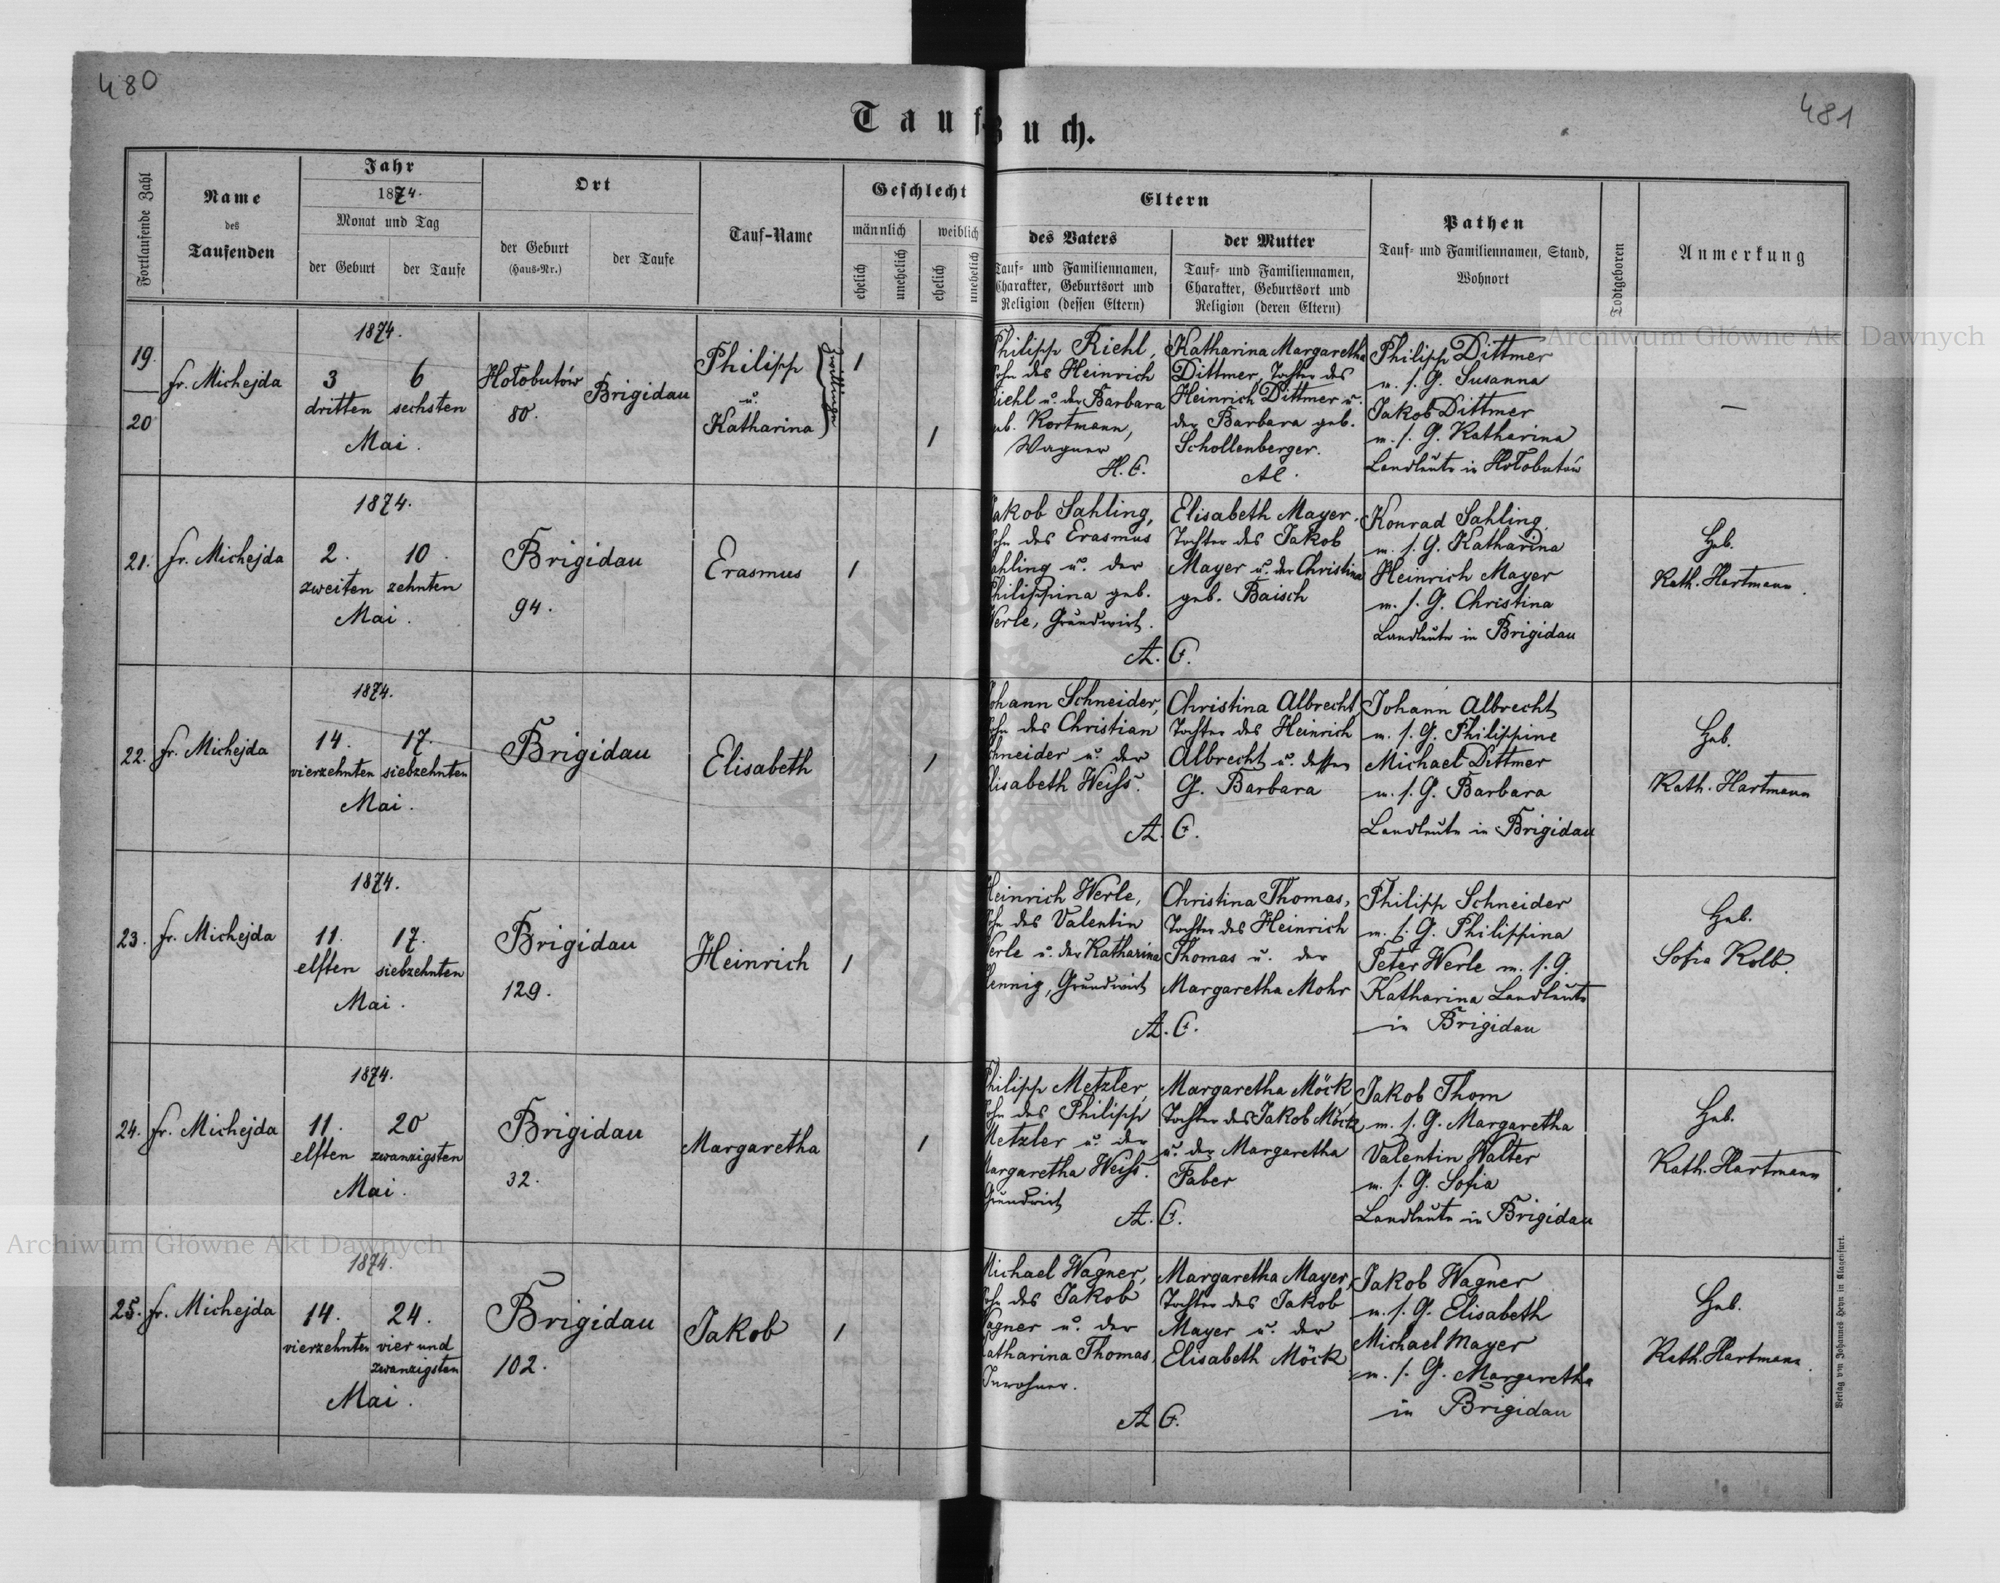 480
481
Tauf-Buch.
Fortlaufende Zahl
Name
des
Taufenden
Jahr
1874.
Monat und Tag
der Geburt
der Taufe
Ort
der Geburt
(Haus-Nr.)
der Taufe
Tauf-Name
Geschlecht
männlich
weiblich
ehelich
unehelich
ehelich
unehelich
Eltern
des Vaters
Tauf- und Familiennamen,
Charakter, Geburtsort und
Religion (dessen Eltern)
der Mutter
Tauf- und Familiennamen,
Charakter, Geburtsort und
Religion (deren Eltern)
Pathen
Tauf- und Familiennamen, Stand,
Wohnort
Todtgeboren
Anmerkung
19.
20
fr. Michejda
1874.
3 6
dritten sechsten
Mai.
Hołobutów
80.
Brigidau
Philipp
u.
Katharina
Zwillinge
1
1
Philipp Riehl,
Sohn des Heinrich
Riehl u. der Barbara
geb. Kortmann,
Wagner
H. C.
Katharina Margaretha
Dittmer, Tochter des
Heinrich Dittmer u.
der Barbara geb.
Schollenberger.
AC.
Philipp Dittmer
m. s. G. Susanna
Jakob Dittmer
m. s. G. Katharina
Landleute in Hołobutów
—
21.
fr. Michejda
1874.
2. 10.
zweiten zehnten
Mai.
Brigidau
94.
Erasmus
1
Jakob Sahling,
Sohn des Erasmus
Sahling u. der
Philippina geb.
Werle, Grundwirt.
A. C.
Elisabeth Mayer.
Tochter des Jakob
Mayer u. der Christina
geb. Baisch
Konrad Sahling
m. s. G. Katharina
Heinrich Mayer
m. s. G. Christina
Landleute in Brigidau
Heb.
Kath. Hartmann.
22.
fr. Michejda
1874.
14. 17.
vierzehnten siebzehnten
Mai.
Brigidau
Elisabeth
1
Johann Schneider,
Sohn des Christian
Schneider u. der
Elisabeth Weiss.
A. C.
Christina Albrecht
Tochter des Heinrich
Albrecht u. dessen
G. Barbara
Johann Albrecht
m. s. G. Philippine
Michael Dittmer
m. s. G. Barbara
Landleute in Brigidau
Heb.
Kath. Hartmann
23.
fr. Michejda
1874.
11. 17.
elften siebzehnten
Mai.
Brigidau
129.
Heinrich
1
Heinrich Werle,
Sohn des Valentin
Werle u. der Katharina
Hennig, Grundwirt
A. C.
Christina Thomas,
Tochter des Heinrich
Thomas u. der
Margaretha Mohr
Philipp Schneider
m. s. G. Philippina
Peter Werle m. s. G.
Katharina Landleute
in Brigidau
Heb.
Sofia Kolb.
24.
fr. Michejda
1874.
11. 20
elften zwanzigsten
Mai.
Brigidau
32.
Margaretha
1
Philipp Metzler,
Sohn des Philipp
Metzler u. der
Margaretha Weiss.
Grundwirt
A. C.
Margaretha Möck
Tochter des Jakob Möck
u. der Margaretha
Faber
Jakob Thom
m. s. G. Margaretha
Valentin Walter
m. s. G. Sofia
Landleute in Brigidau
Heb.
Kath. Hartmann
25.
fr. Michejda
1874.
14. 24.
vierzehnten vier und
zwanzigsten
Mai.
Brigidau
102.
Jakob
1
Michael Wagner,
Sohn des Jakob
Wagner u. der
Katharina Thomas,
Inwohner.
A. C.
Margaretha Mayer,
Tochter des Jakob
Mayer u. der
Elisabeth Möck
Jakob Wagner
m. s. G. Elisabeth
Michael Mayer
m. s. G. Margaretha
in Brigidau
Heb.
Kath. Hartmann.
Verlag von Johannes Heyn in Klagenfurt.
Archiwum Główne Akt Dawnych
Archiwum Główne Akt Dawnych